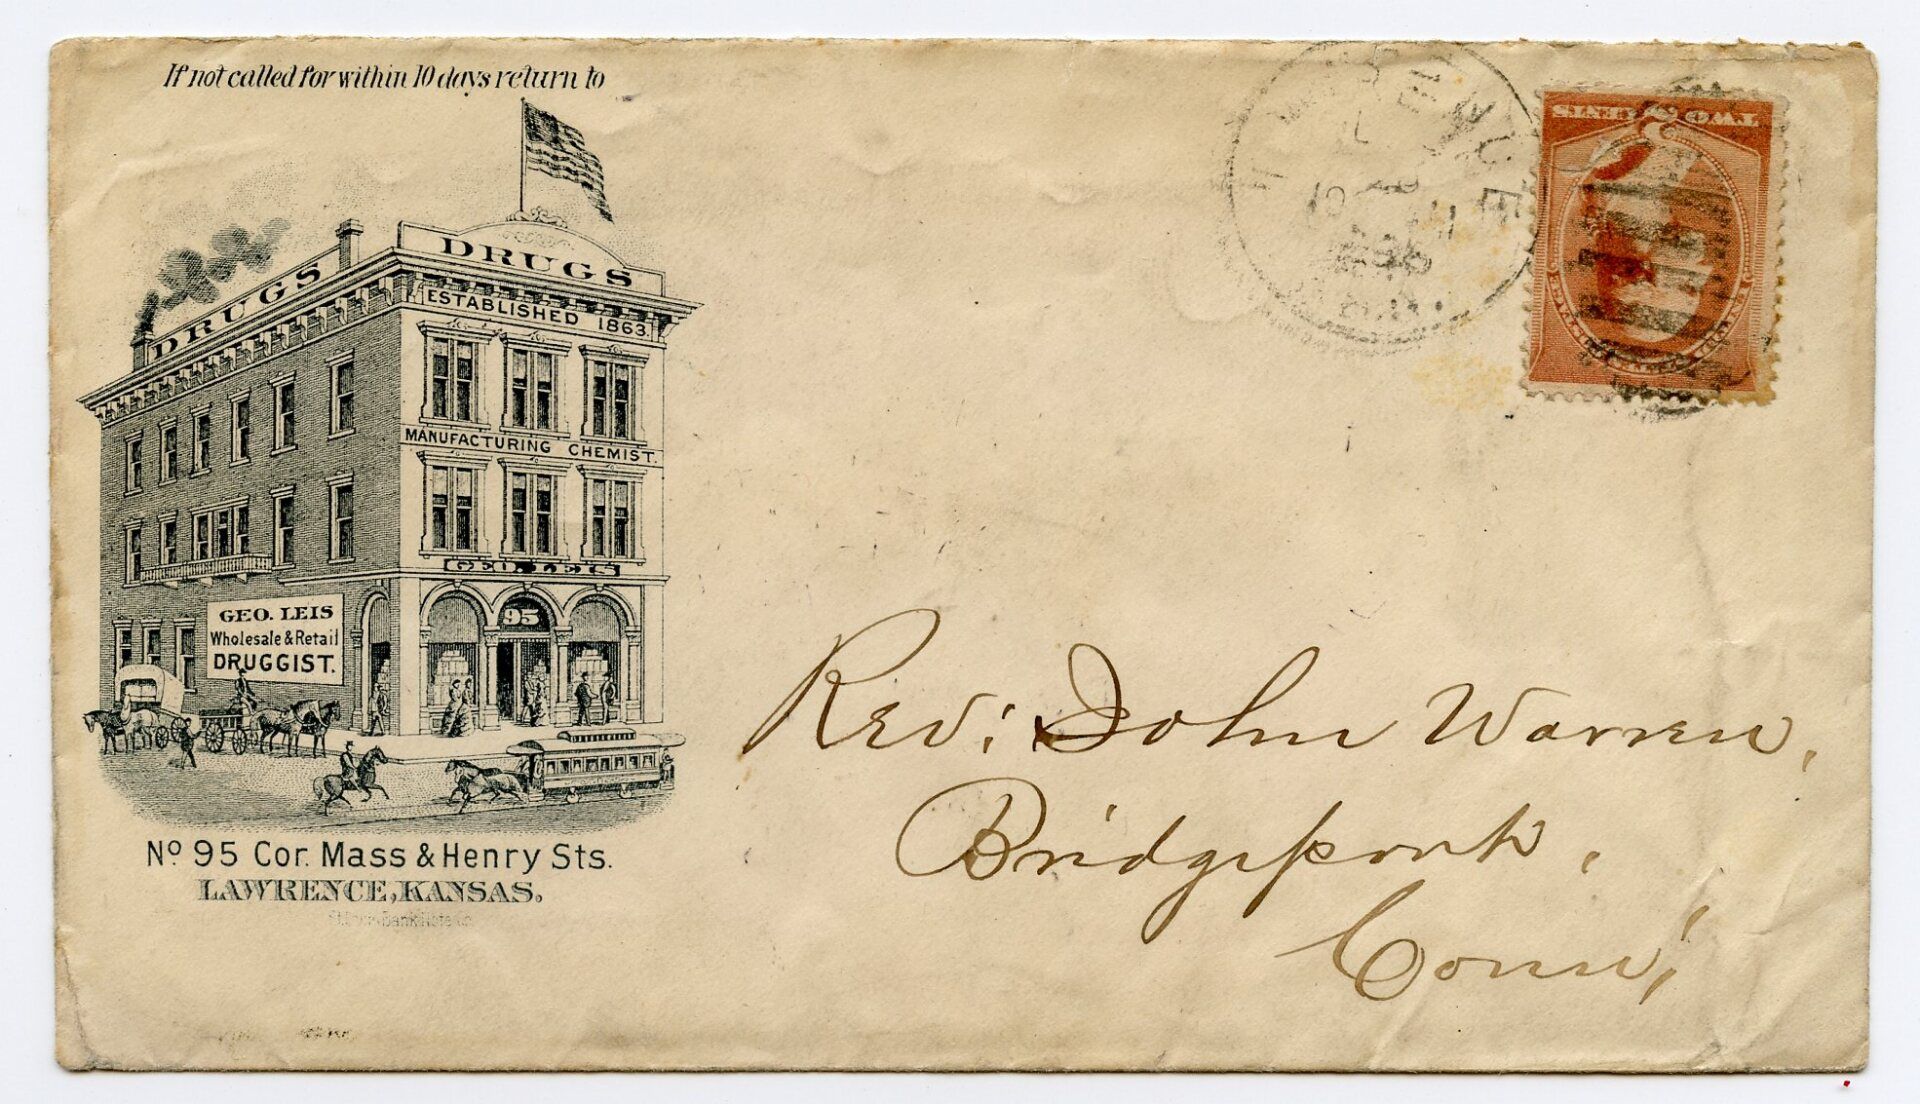 If not called for within 10 days return to
DRUGS
DRUGS
ESTABLISHED 1863.
MANUFACTURING CHEMIST.
GEO. LEIS
95
GEO. LEIS
Wholesale & Retail
DRUGGIST.
No 95 Cor. Mass & Henry Sts.
LAWRENCE, KANSAS.
TWO CENTS
Rev: John Warren,
Bridgeport,
Conn,